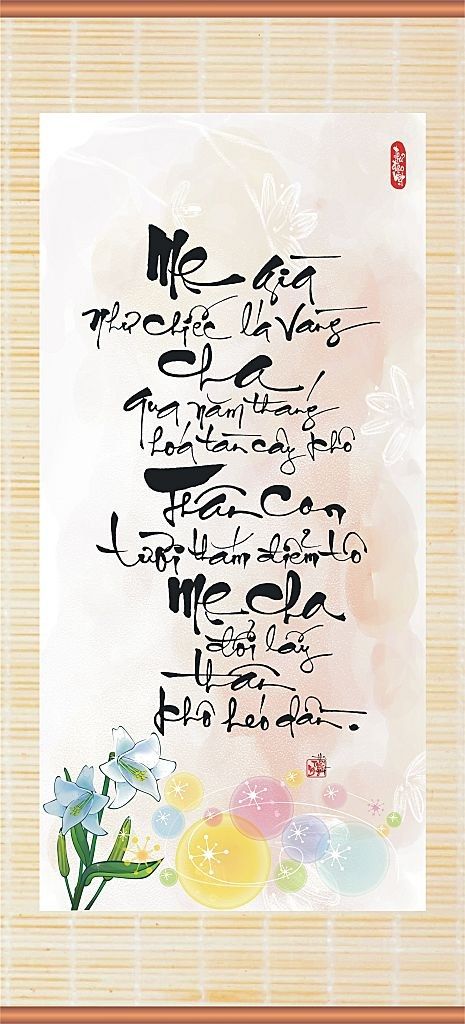 Mẹ già
như chiếc lá vàng
cha
qua năm tháng
hoá tàn cây khô
Thân con
tươi thắm điểm tô
Mẹ cha
đổi lấy
thân
khô héo dần.